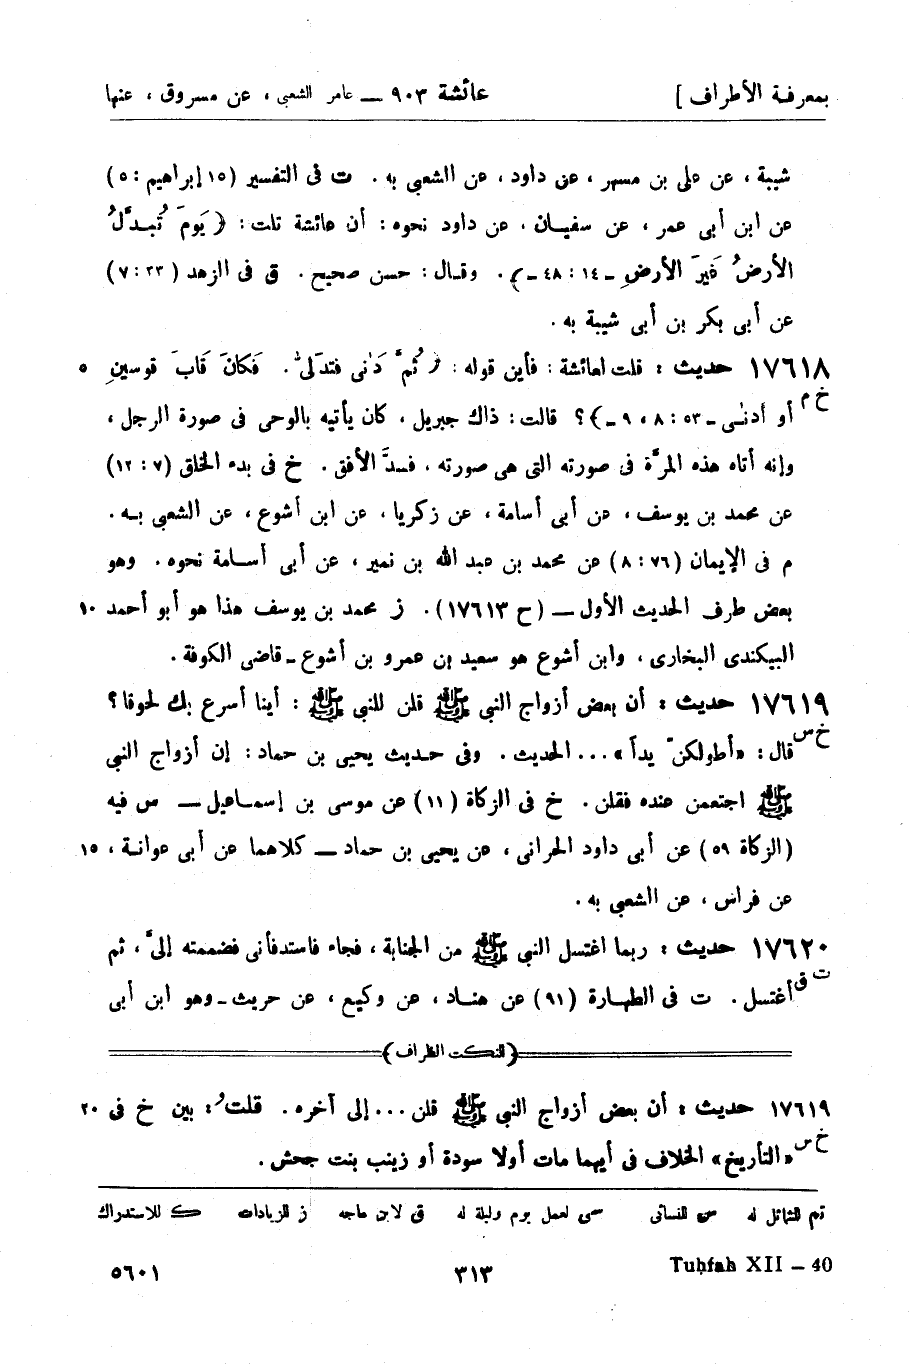 بمعرفة الأطراف ] عائشة ٩٠٣ — عامر الشعبي ، عن مسروق ، عنها
شيبة ، عن على بن مسهر ، عن داود ، عن الشعبى به . ت فى التفسير (١٥ إبراهيم : ٥)
عن ابن أبى عمر ، عن سفيـان ، عن داود نحوه : أن عائشة تلت : ﴿ يَومَ تُبـدَّلُ
الأرضُ غَيرَ الأرضِ ـ ١٤ : ٤٨ ـ ﴾ . وقـال : حسن صحيح . ق فى الزهد (٣٣ : ٧)
عن أبى بكر بن أبى شيبة به .
١٧٦١٨ حديث : قلت لعائشة : فأين قوله : ﴿ ثُمَّ دَنٰى فتدَلّٰى . فَكانَ قَابَ قوسينِ ٥
خ م
أو أدنـٰى ـ ٥٣ : ٨ ، ٩ ـ ﴾ ؟ قالت : ذاك جبريل ، كان يأتيه بالوحى فى صورة الرجل ،
وإنه أتاه هذه المرَّة فى صورته التى هى صورته ، فسدَّ الأفق . خ فى بدء الخلق (٧ : ١٢)
عن محمد بن يوسف ، عن أبى أسامة ، عن زكريا ، عن ابن أشوع ، عن الشعبى بـه .
م فى الإيمان (٧٦ : ٨) عن محمد بن عبد الله بن نمير ، عن أبى أسـامة نحوه . وهو
بعض طرف الحديث الأول — (ح ١٧٦١٣) . ز محمد بن يوسف هذا هو أبو أحمد ١٠
البيكندى البخارى ، وابن أشوع هو سعيد بن عمرو بن أشوع ـ قاضى الكوفة .
١٧٦١٩ حديث : أن بعض أزواج النبى ﷺ قلن للنبى ﷺ : أينا أسرع بك لحوقا ؟
خ س
قال : «أطولكنّ يداً» ... الحديث . وفى حـديث يحيى بن حماد : إن أزواج النبى
ﷺ اجتمعن عنده فقلن . خ فى الزكاة (١١) عن موسى بن إسمـاعيل — س فيه
(الزكاة ٥٩) عن أبى داود الحرانى ، عن يحيى بن حماد — كلاهما عن أبى عوانـة ، ١٥
عن فراس ، عن الشعبى به .
١٧٦٢٠ حديث : ربما اغتسل النبى ﷺ من الجنابة ، فجاء فاستدفأنى فضممته إلىَّ ، ثم
ت ق
أغتسل . ت فى الطهـارة (٩١) عن هنـاد ، عن وكيع ، عن حريث ـ وهو ابن أبى
(النكت الظراف)
١٧٦١٩ حديث : أن بعض أزواج النبى ﷺ قلن ... إلى آخره . قلتُ : بين خ فى ٢٠
خ س
«التأريخ» الخلاف فى أيهما مات أولا سودة أو زينب بنت جحش .
تم للشمائل له س للنسائى سى لعمل يوم وليلة له ق لابن ماجه ز للزيادات ك للاستدراك
Tuḥfah XII – 40 ٣١٣ ٥٦٠١